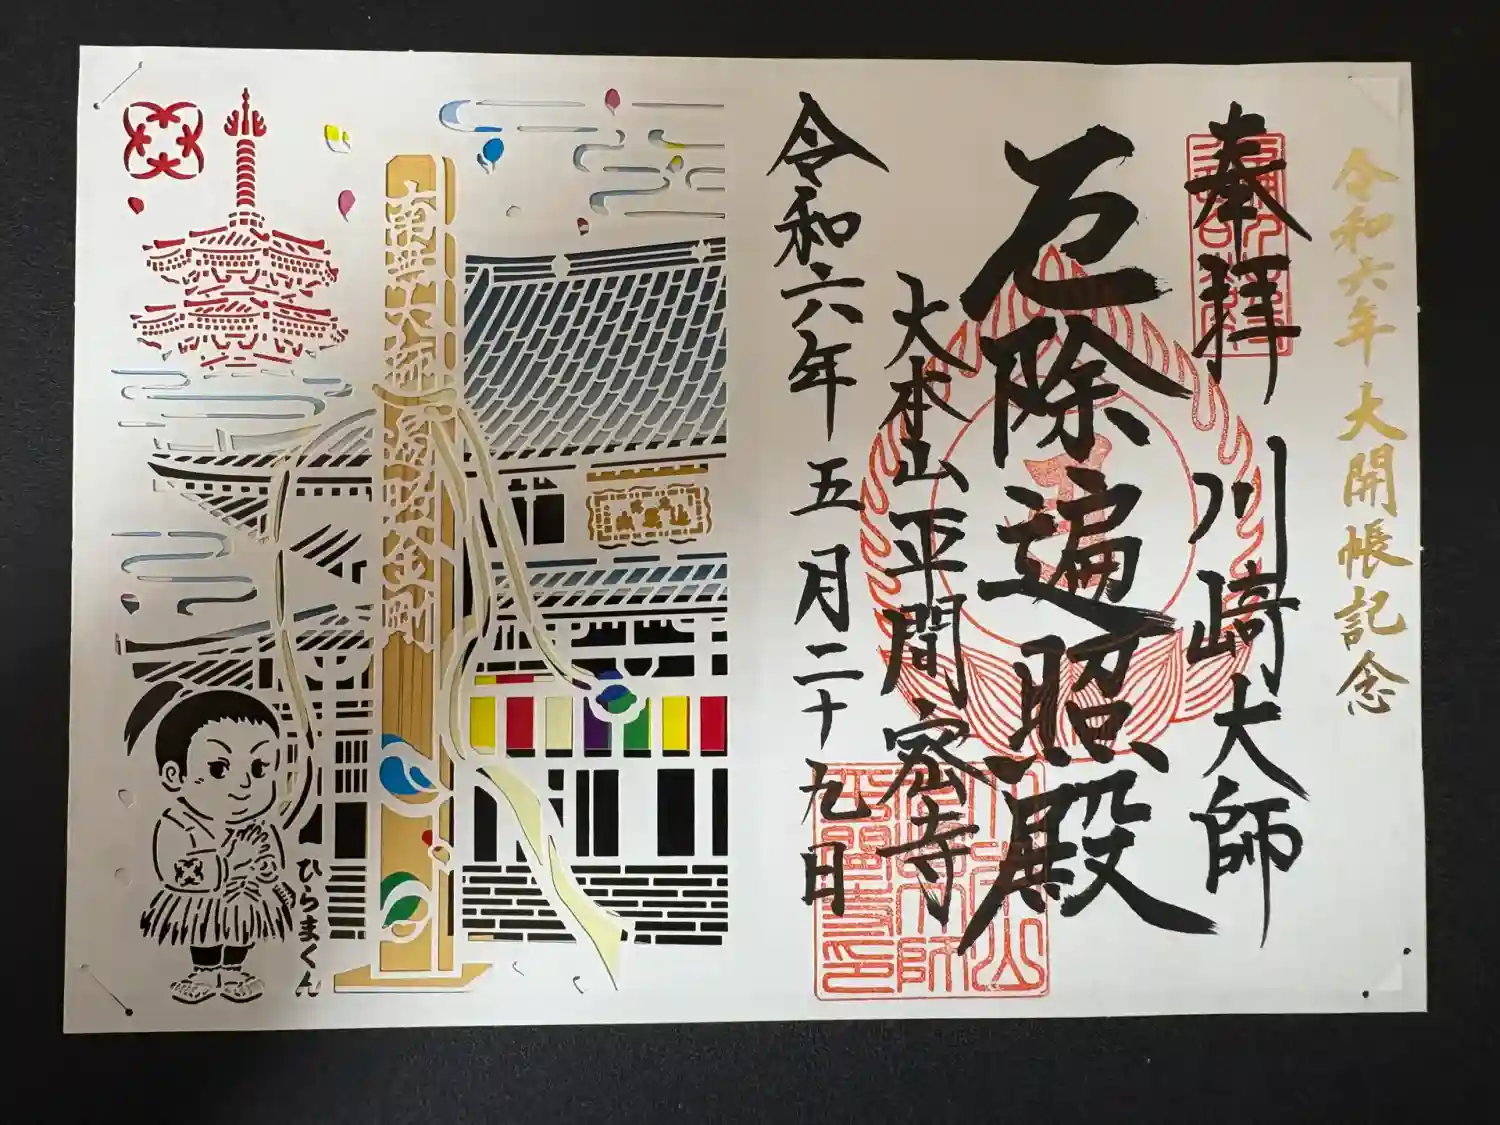 令和六年大開帳記念
奉拝
川崎大師
厄除遍照殿
大本山平間寺
令和六年五月二十九日
南無大師遍照金剛
ひらまくん